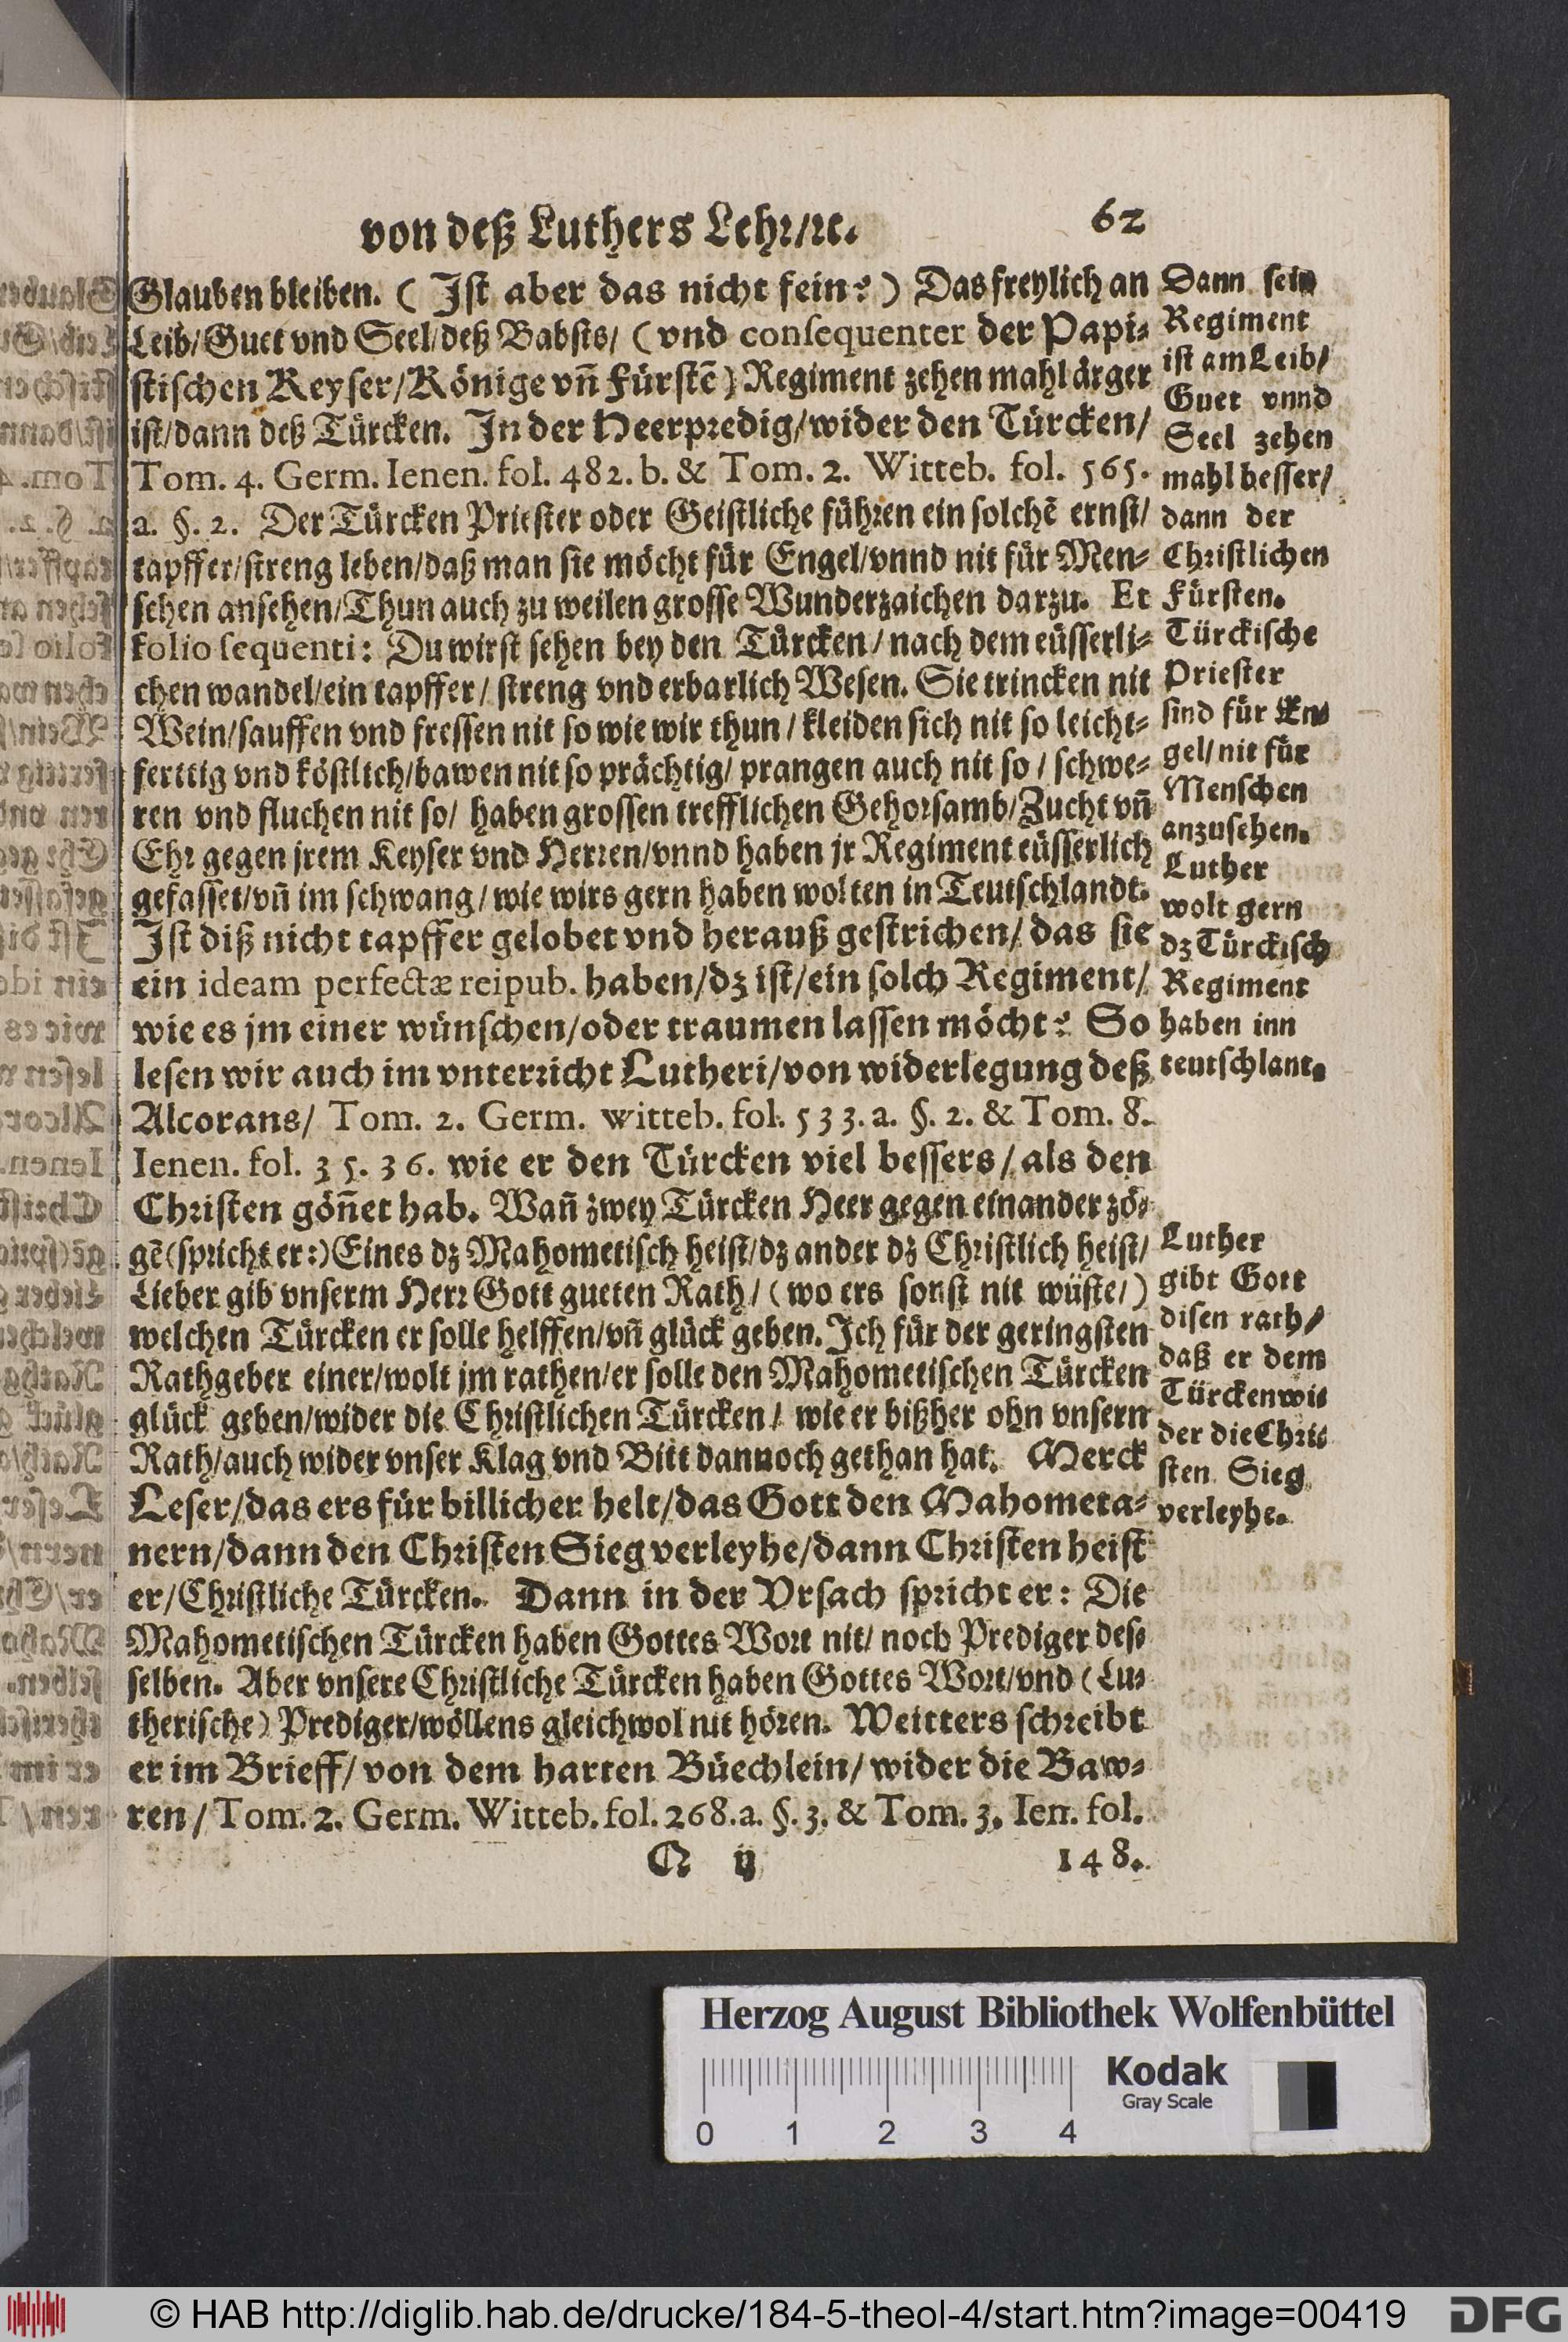 von deß Luthers Lehr/ꝛc.
62
Glauben bleiben. ( Ist aber das nicht fein? ) Das freylich an
Leib/Guet vnd Seel/deß Babsts/ (vnd consequenter der Papi-
stischen Keyser/Könige vñ Fürstē) Regiment zehen mahl ärger
ist/dann deß Türcken. In der Heerpredig/wider den Türcken/
Tom. 4. Germ. Ienen. fol. 482. b. & Tom. 2. Witteb. fol. 565.
a. §. 2. Der Türcken Priester oder Geistliche führen ein solchē ernst/
tapffer/streng leben/daß man sie möcht für Engel/vnnd nit für Men-
schen ansehen/Thun auch zu weilen grosse Wunderzaichen darzu. Et
folio sequenti: Du wirst sehen bey den Türcken/nach dem eüsserli-
chen wandel/ein tapffer/ streng vnd erbarlich Wesen. Sie trincken nit
Wein/sauffen vnd fressen nit so wie wir thun/kleiden sich nit so leicht-
ferttig vnd köstlich/bawen nit so prächtig/ prangen auch nit so/ schwe-
ren vnd fluchen nit so/ haben grossen trefflichen Gehorsamb/Zucht vñ
Ehr gegen jrem Keyser vnd Herren/vnnd haben jr Regiment eüsserlich
gefasset/vñ im schwang/wie wirs gern haben wolten in Teutschlandt.
Ist diß nicht tapffer gelobet vnd herauß gestrichen/ das sie
ein ideam perfectæ reipub. haben/dz ist/ein solch Regiment/
wie es jm einer wünschen/oder traumen lassen möcht? So
lesen wir auch im vnterricht Lutheri/von widerlegung deß
Alcorans/ Tom. 2. Germ. witteb. fol. 533. a. §. 2. & Tom. 8.
Ienen. fol. 35. 36. wie er den Türcken viel bessers/als den
Christen gönnet hab. Wañ zwey Türcken Heer gegen einander zö-
gē(spricht er:)Eines dz Mahometisch heist/dz ander dz Christlich heist/
Lieber gib vnserm Herr Gott gueten Rath/ (wo ers sonst nit wüste/)
welchen Türcken er solle helffen/vñ glück geben. Ich für der geringsten
Rathgeber einer/wolt jm rathen/er solle den Mahometischen Türcken
glück geben/wider die Christlichen Türcken/ wie er bißher ohn vnsern
Rath/auch wider vnser Klag vnd Bitt dannoch gethan hat. Merck
Leser/das ers für billicher helt/das Gott den Mahometa-
nern/dann den Christen Sieg verleyhe/dann Christen heist
er/Christliche Türcken. Dann in der Vrsach spricht er: Die
Mahometischen Türcken haben Gottes Wort nit/ noch Prediger des-
selben. Aber vnsere Christliche Türcken haben Gottes Wort/vnd (Lu-
therische) Prediger/wöllens gleichwol nit hören. Weitters schreibt
er im Brieff/ von dem harten Büechlein/ wider die Baw-
ren/Tom. 2. Germ. Witteb. fol. 268. a. §. 3. & Tom. 3. Ien. fol.
Q ij
148.
Dann sein
Regiment
ist am Leib/
Guet vnnd
Seel zehen
mahl besser/
dann der
Christlichen
Fürsten.
Türckische
Priester
sind für En-
gel/nit für
Menschen
anzusehen.
Luther
wolt gern
dz Türckisch
Regiment
haben inn
teutschlant.
Luther
gibt Gott
disen rath/
daß er dem
Türcken wi-
der die Chri-
sten Sieg
verleyhe.
Herzog August Bibliothek Wolfenbüttel
Kodak
Gray Scale
0 1 2 3 4
© HAB http://diglib.hab.de/drucke/184-5-theol-4/start.htm?image=00419
DFG